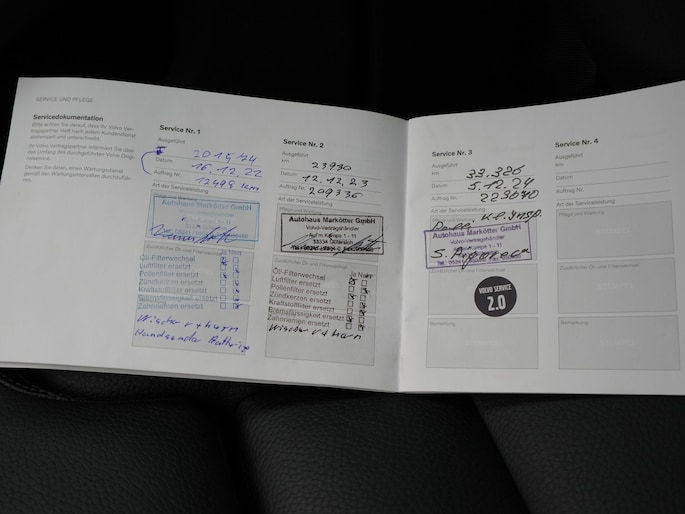 SERVICE UND PFLEGE
Servicedokumentation
Bitte achten Sie darauf, dass Ihr Volvo Ver-
tragspartner Heft nach jedem Kundendienst
abstempelt und unterschreibt.
Ihr Volvo Vertragspartner informiert Sie über
den Umfang des durchgeführten Volvo Origi-
nalservice.
Denken Sie daran, einen Wartungsdienst
gemäß den Wartungsintervallen durchzufüh-
ren.
Service Nr. 1
Ausgeführt
201574
Datum
16.12.22
Auftrag Nr.
12499 km
Art der Serviceleistung
Pflege und Wartung
Autohaus Markötter GmbH
Volvo-Vertragshändler
Zusätzlicher Öl- und Filterwechsel
Ja Nein
Öl-Filterwechsel
Luftfilter ersetzt
Pollenfilter ersetzt
Zündkerzen ersetzt
Kraftstofffilter ersetzt
Bremsflüssigkeit ersetzt
Zahnriemen ersetzt
Wischer v + harn
Handsender Batterie
Service Nr. 2
Ausgeführt
km
23970
Datum
12.12.23
Auftrag Nr.
209336
Art der Serviceleistung
Autohaus Markötter GmbH
Volvo-Vertragshändler
Auf'm Kampe 1 - 11
33334 Gütersloh
Ja Nein
Öl-Filterwechsel
Luftfilter ersetzt
Pollenfilter ersetzt
Zündkerzen ersetzt
Kraftstofffilter ersetzt
Bremsflüssigkeit ersetzt
Zahnriemen ersetzt
Wischer v + harn
Service Nr. 3
Ausgeführt
km
33.326
Datum
5.12.24
Auftrag Nr.
223040
Art der Serviceleistung
Pflege und Wartung
Autohaus Markötter GmbH
Volvo-Vertragshändler
Auf'm Kampe 1 - 11
Zusätzlicher Öl- und Filterwechsel
VOLVO SERVICE
2.0
Bemerkung
Service Nr. 4
Ausgeführt
km
Datum
Auftrag Nr.
Art der Serviceleistung
Pflege und Wartung
Zusätzlicher Öl- und Filterwechsel
Bemerkung